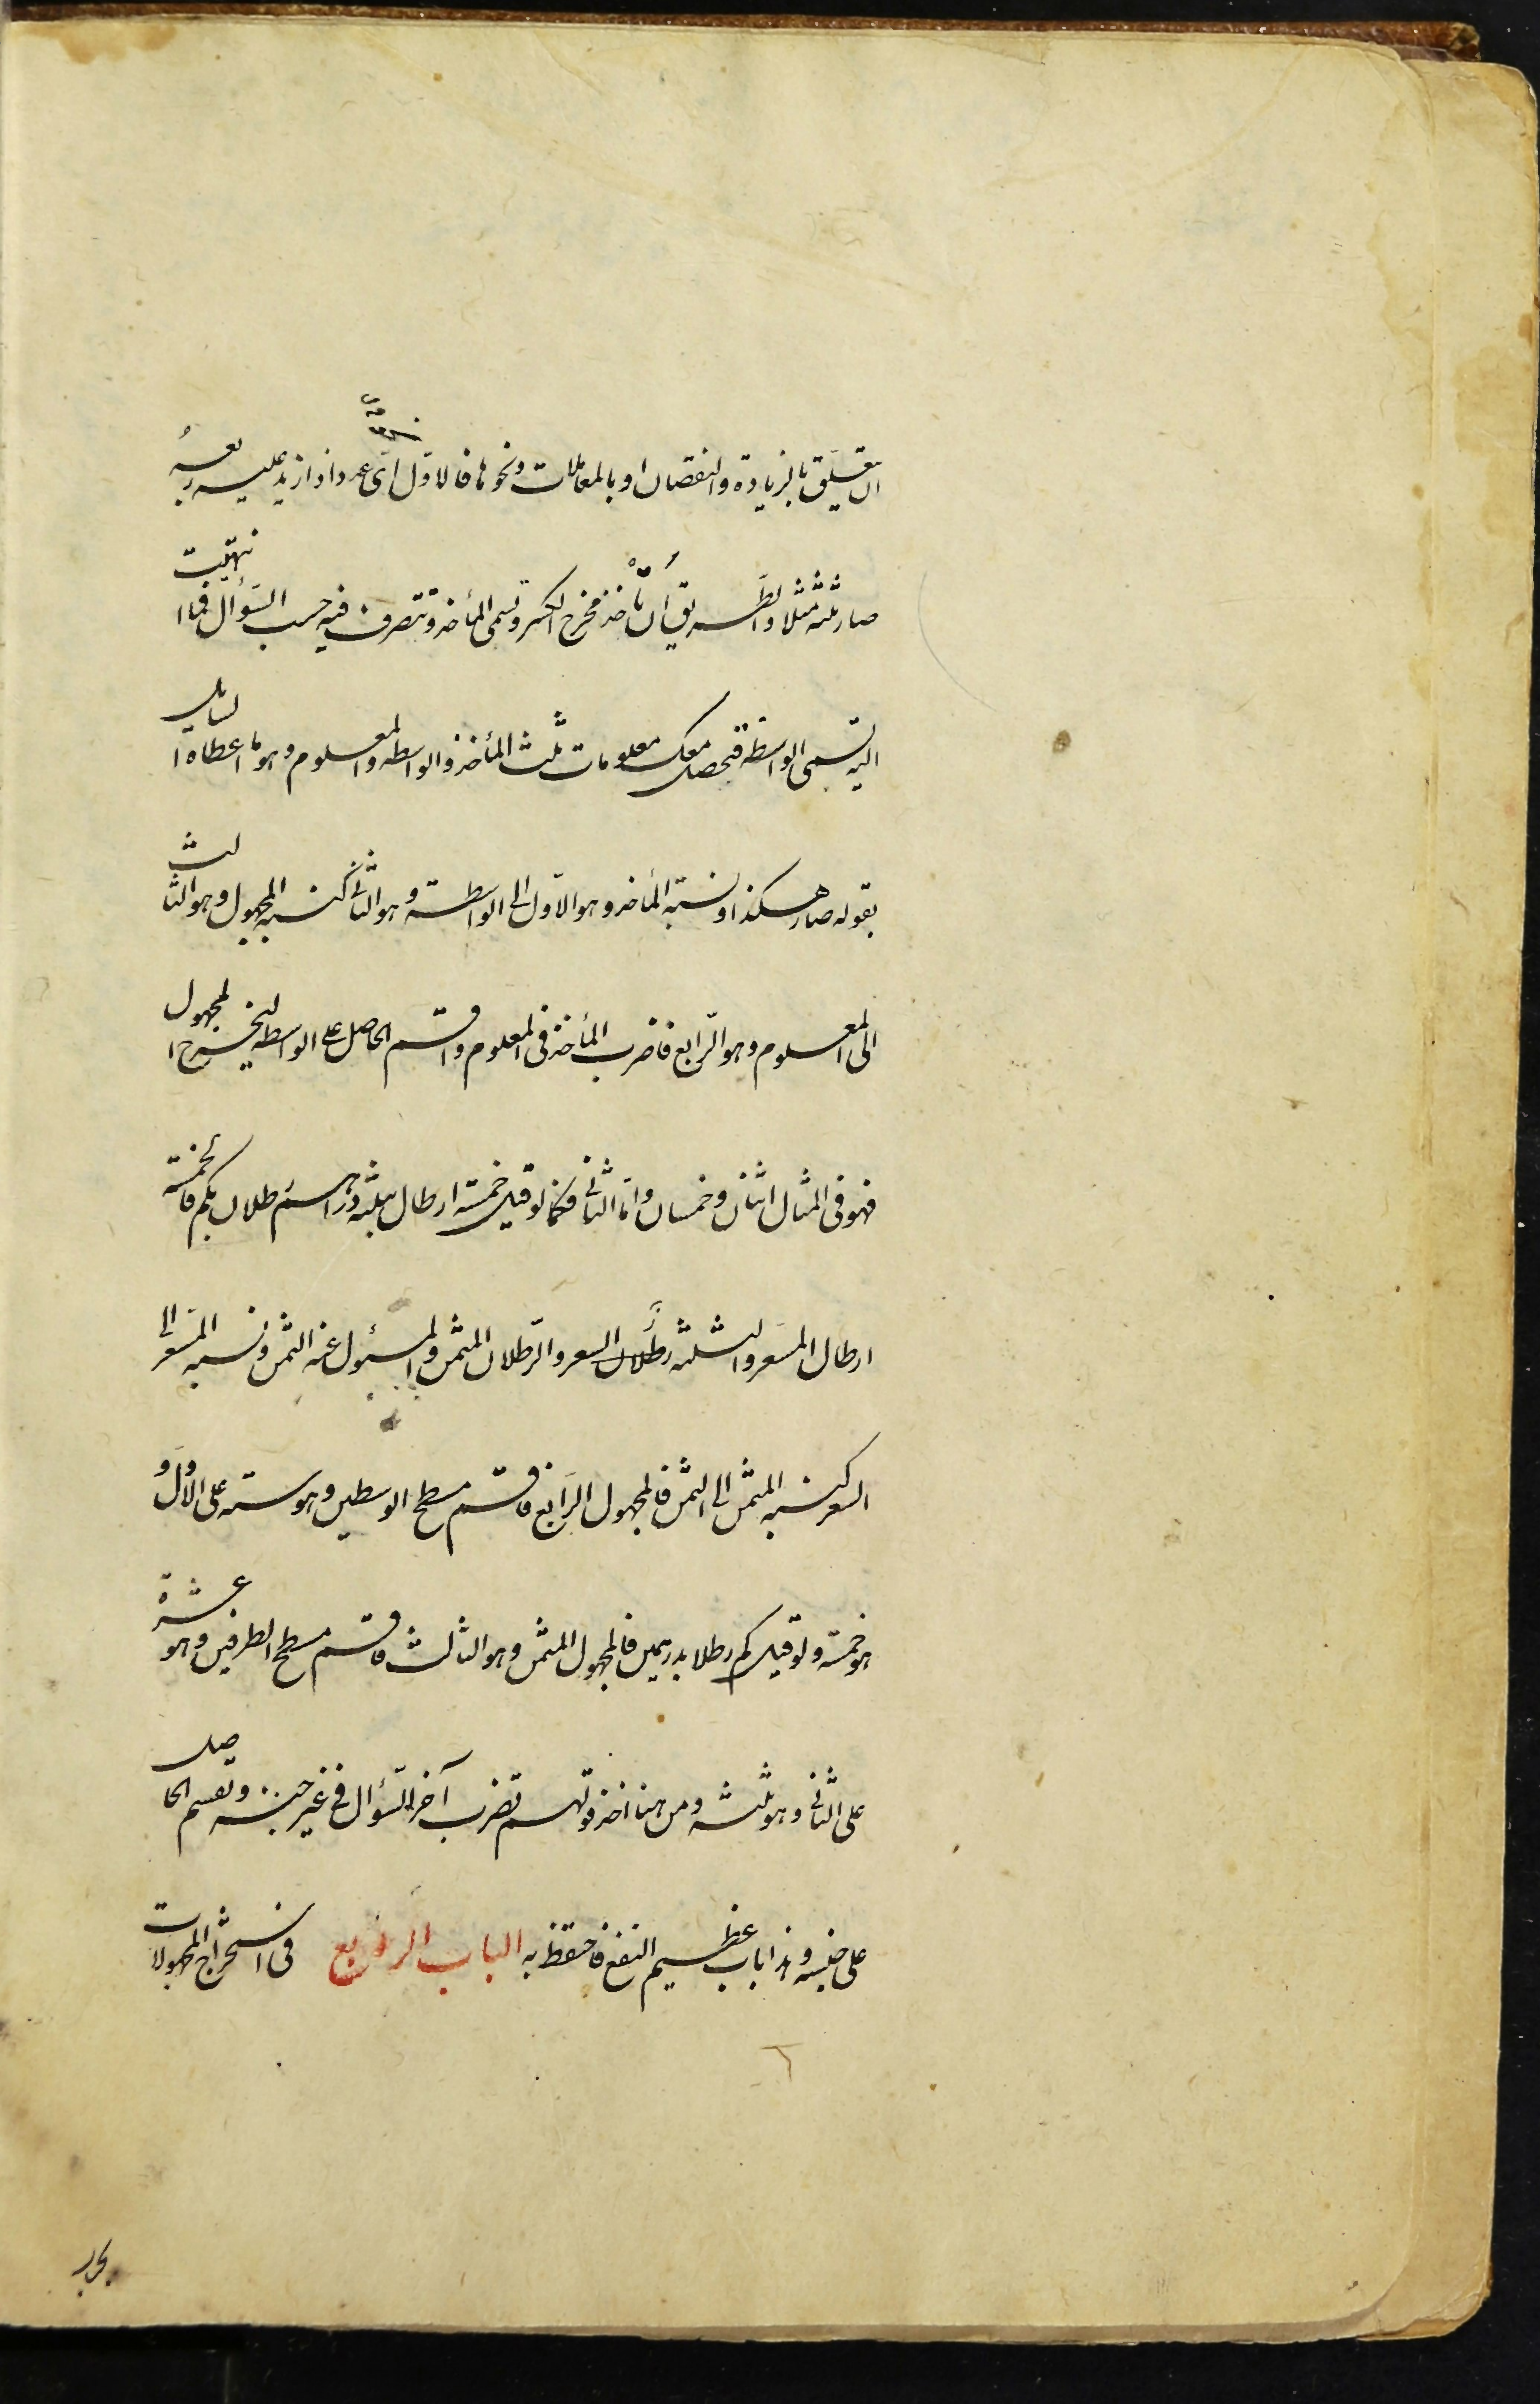 ان يتعلق بالزيادة والنقصان او بالمعاملات ونحوها فالاول اى عدد اذا زيد عليه ربعه
صار ثلثه مثلا والطريق ان تأخذ مخرج الكسر وتسمى المأخذ وتتصرف فيه حسب السؤال فما انتهيت
اليه تسمى الواسطة فتحصل معك معلومات ثلث المأخذ والواسطه والمعلوم وهو ما اعطاه السايل
بقوله صار هكذا ونسبة المأخذ وهو الاول الى الواسطة وهو الثانى كنسبه المجهول وهو الثالث
الى المعلوم وهو الرابع فاضرب المأخذ فى المعلوم واقسم الحاصل على الواسطه ليخرج المجهول
فهو فى المثال اثنان وخمسان واما الثانى فكما لو قيل خمسة ارطال بثلثه دراهم رطلان بكم فالخمسة
ارطال المسعر والثلثه رطلان السعر والرطلان المثمن والمسئول عنه الثمن ونسبه المسعر الى
السعر كنسبه المثمن الى الثمن فالمجهول الرابع فاقسم مسطح الوسطين وهو سته على الاول و
هو خمسة ولو قيل كم رطلا بدرهمين فالمجهول المثمن وهو الثالث فاقسم مسطح الطرفين وهو عشرة
على الثانى وهو ثلثه ومن هنا اخذ قولهم تضرب آخر السؤال فى غير جنسه وتقسم الحاصل
على جنسه وهذا باب عظيم النفع فاحتفظ به الباب الرابع فى استخراج المجهولات